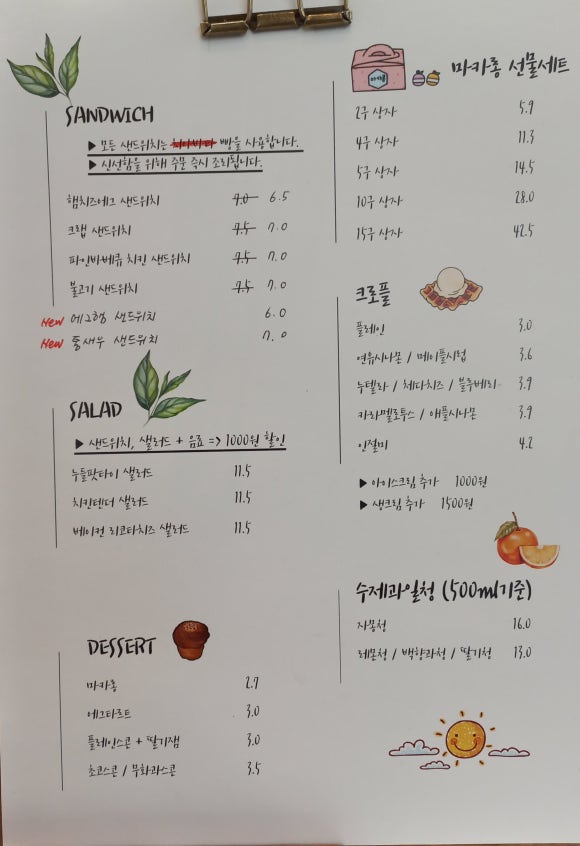 SANDWICH
▶ 모든 샌드위치는 치아바타 빵을 사용합니다.
▶ 신선함을 위해 주문 즉시 조리됩니다.
햄치즈에그 샌드위치 7.0 6.5
크랩 샌드위치 7.5 7.0
파인바베큐 치킨 샌드위치 7.5 7.0
불고기 샌드위치 7.5 7.0
New 에그햄 샌드위치 6.0
New 통새우 샌드위치 7.0
SALAD
▶ 샌드위치, 샐러드 + 음료 => 1000원 할인
누들팟타이 샐러드 11.5
치킨텐더 샐러드 11.5
베이컨 리코타치즈 샐러드 11.5
DESSERT
마카롱 2.7
에그타르트 3.0
플레인스콘 + 딸기잼 3.0
초코스콘 / 무화과스콘 3.5
마카롱 선물세트
2구 상자 5.9
4구 상자 11.3
5구 상자 14.5
10구 상자 28.0
15구 상자 42.5
크로플
플레인 3.0
연유시나몬 / 메이플시럽 3.6
누텔라 / 체다치즈 / 블루베리 3.9
카라멜로투스 / 애플시나몬 3.9
인절미 4.2
▶ 아이스크림 추가 1000원
▶ 생크림 추가 1500원
수제과일청 (500ml기준)
자몽청 16.0
레몬청 / 백향과청 / 딸기청 13.0